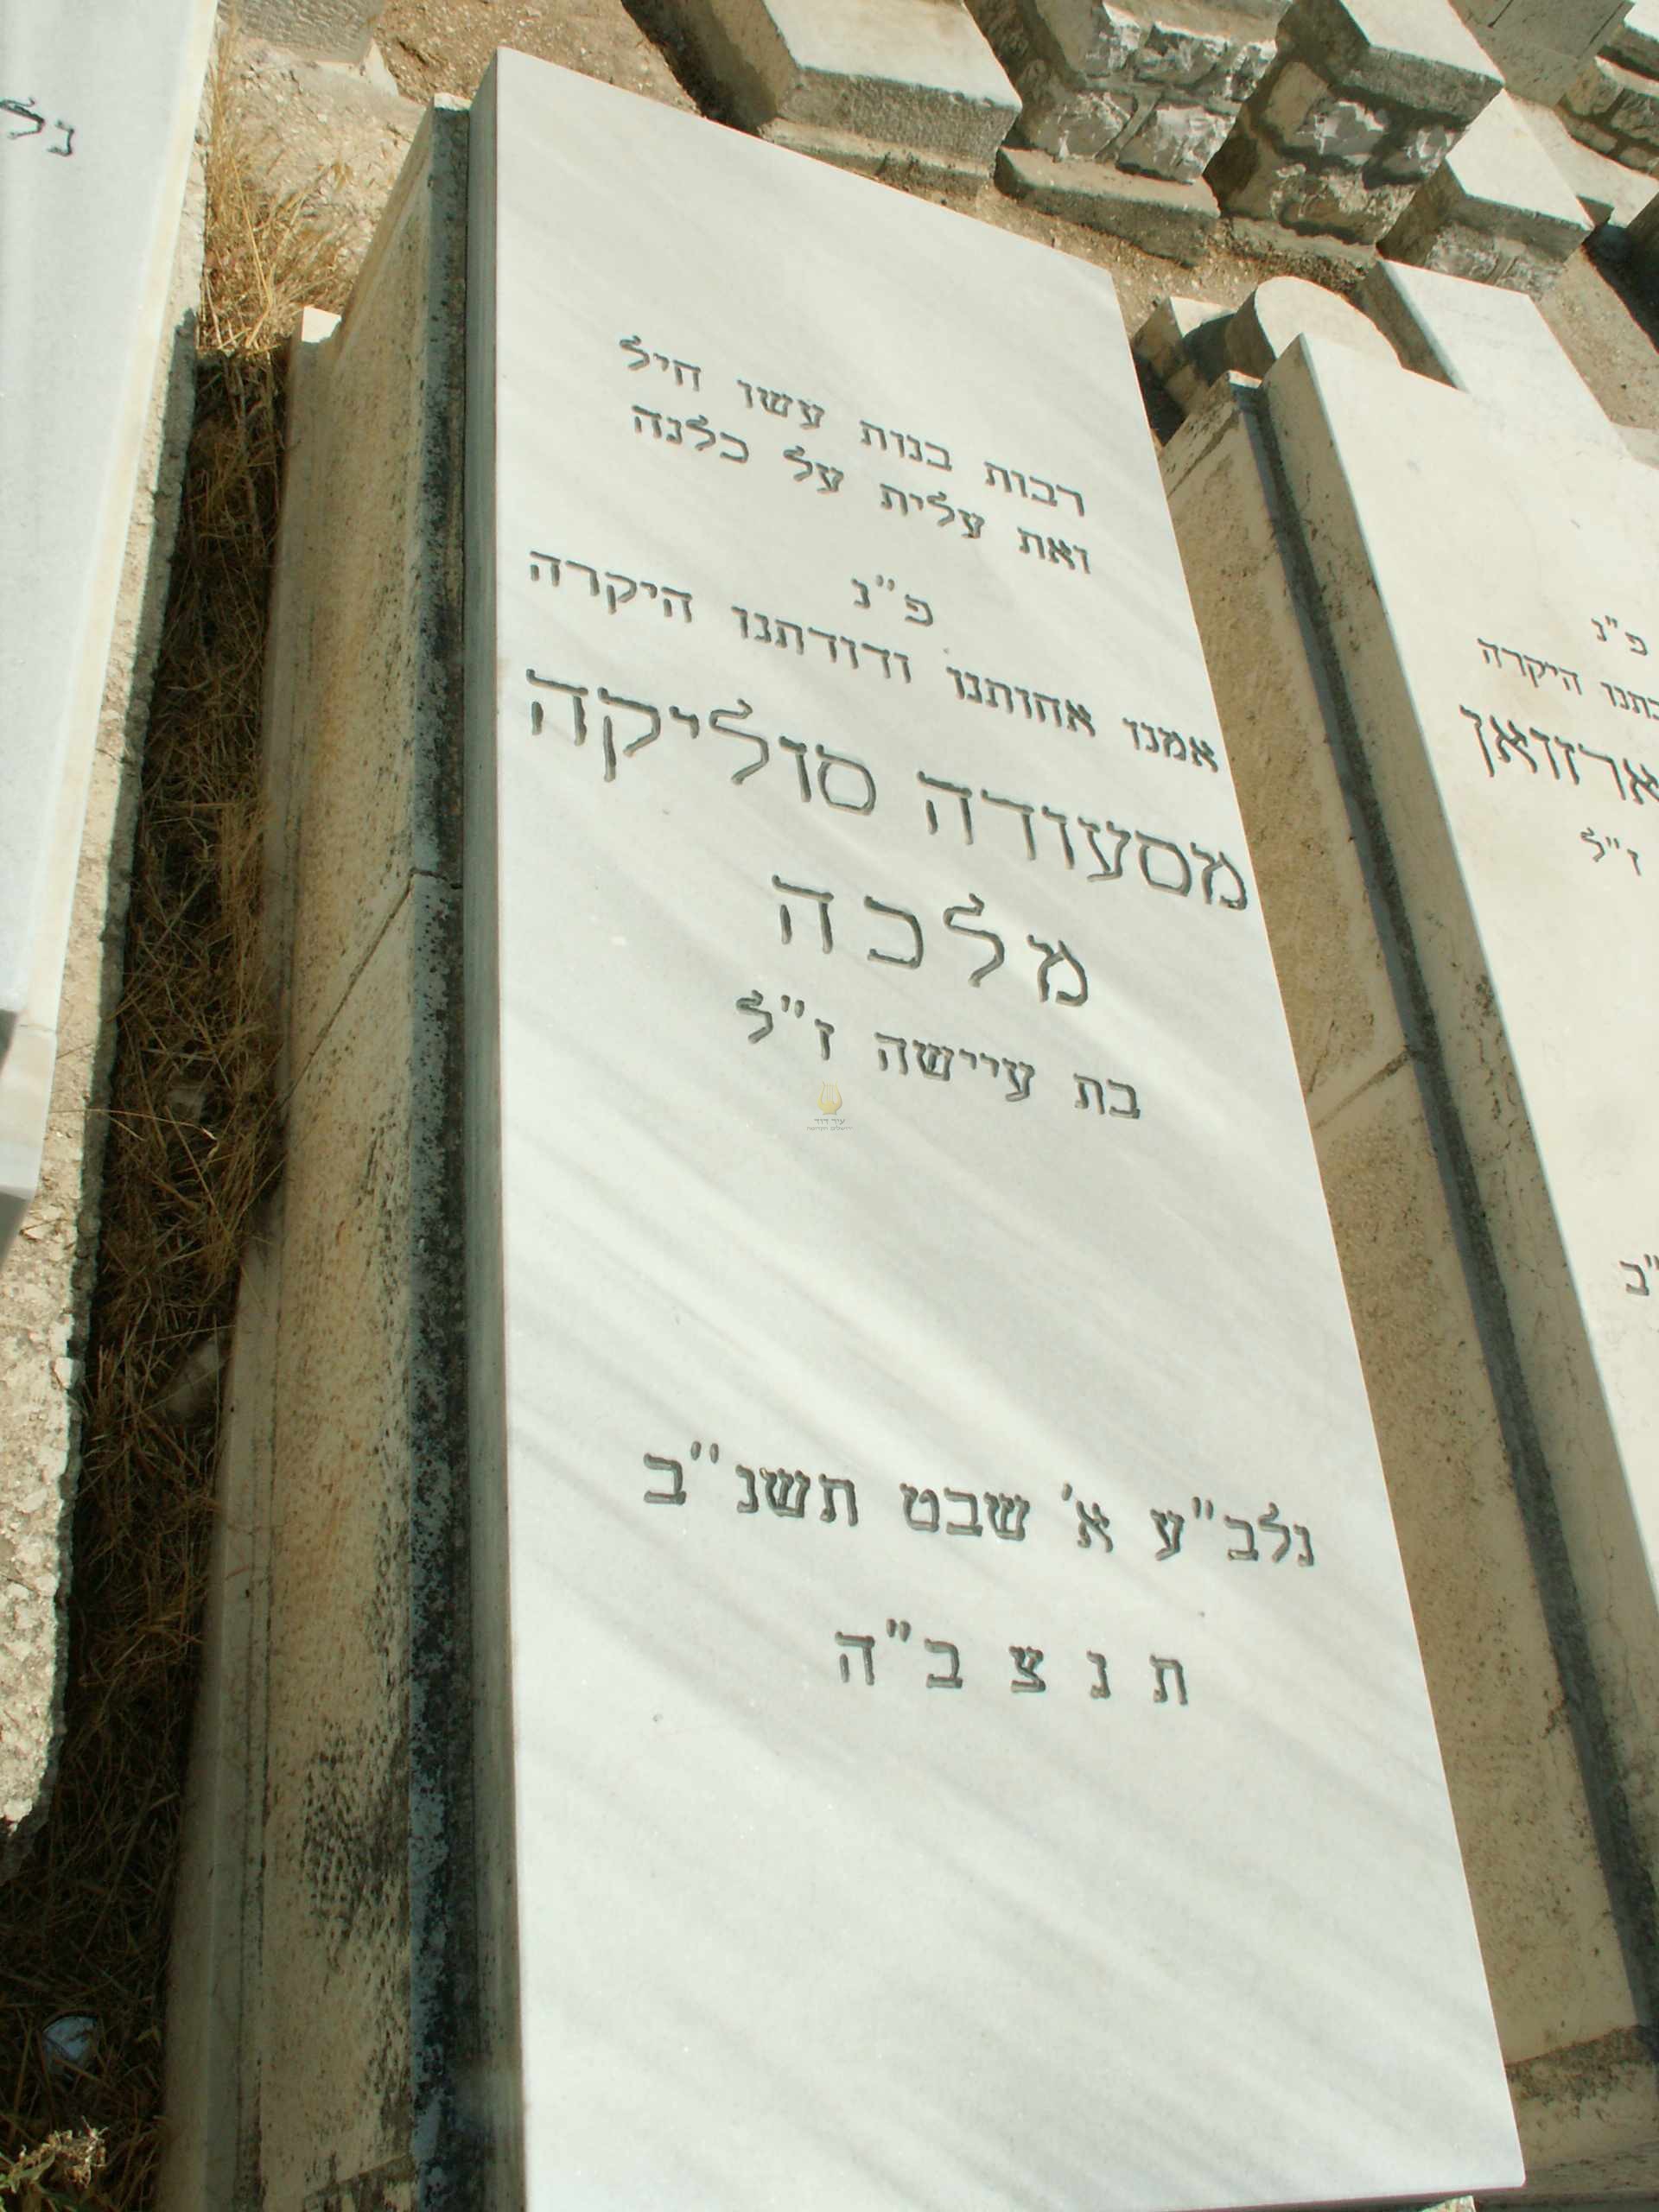 רבות בנות עשו חיל
ואת עלית על כלנה
פ"נ
אמנו אחותנו ודודתנו היקרה
מסעודה סוליקה
מלכה
בת עיישה ז"ל
נלב"ע א' שבט תשנ"ב
ת נ צ ב"ה
פ"נ
היקרה
ארזואן
ז"ל
עיר דוד